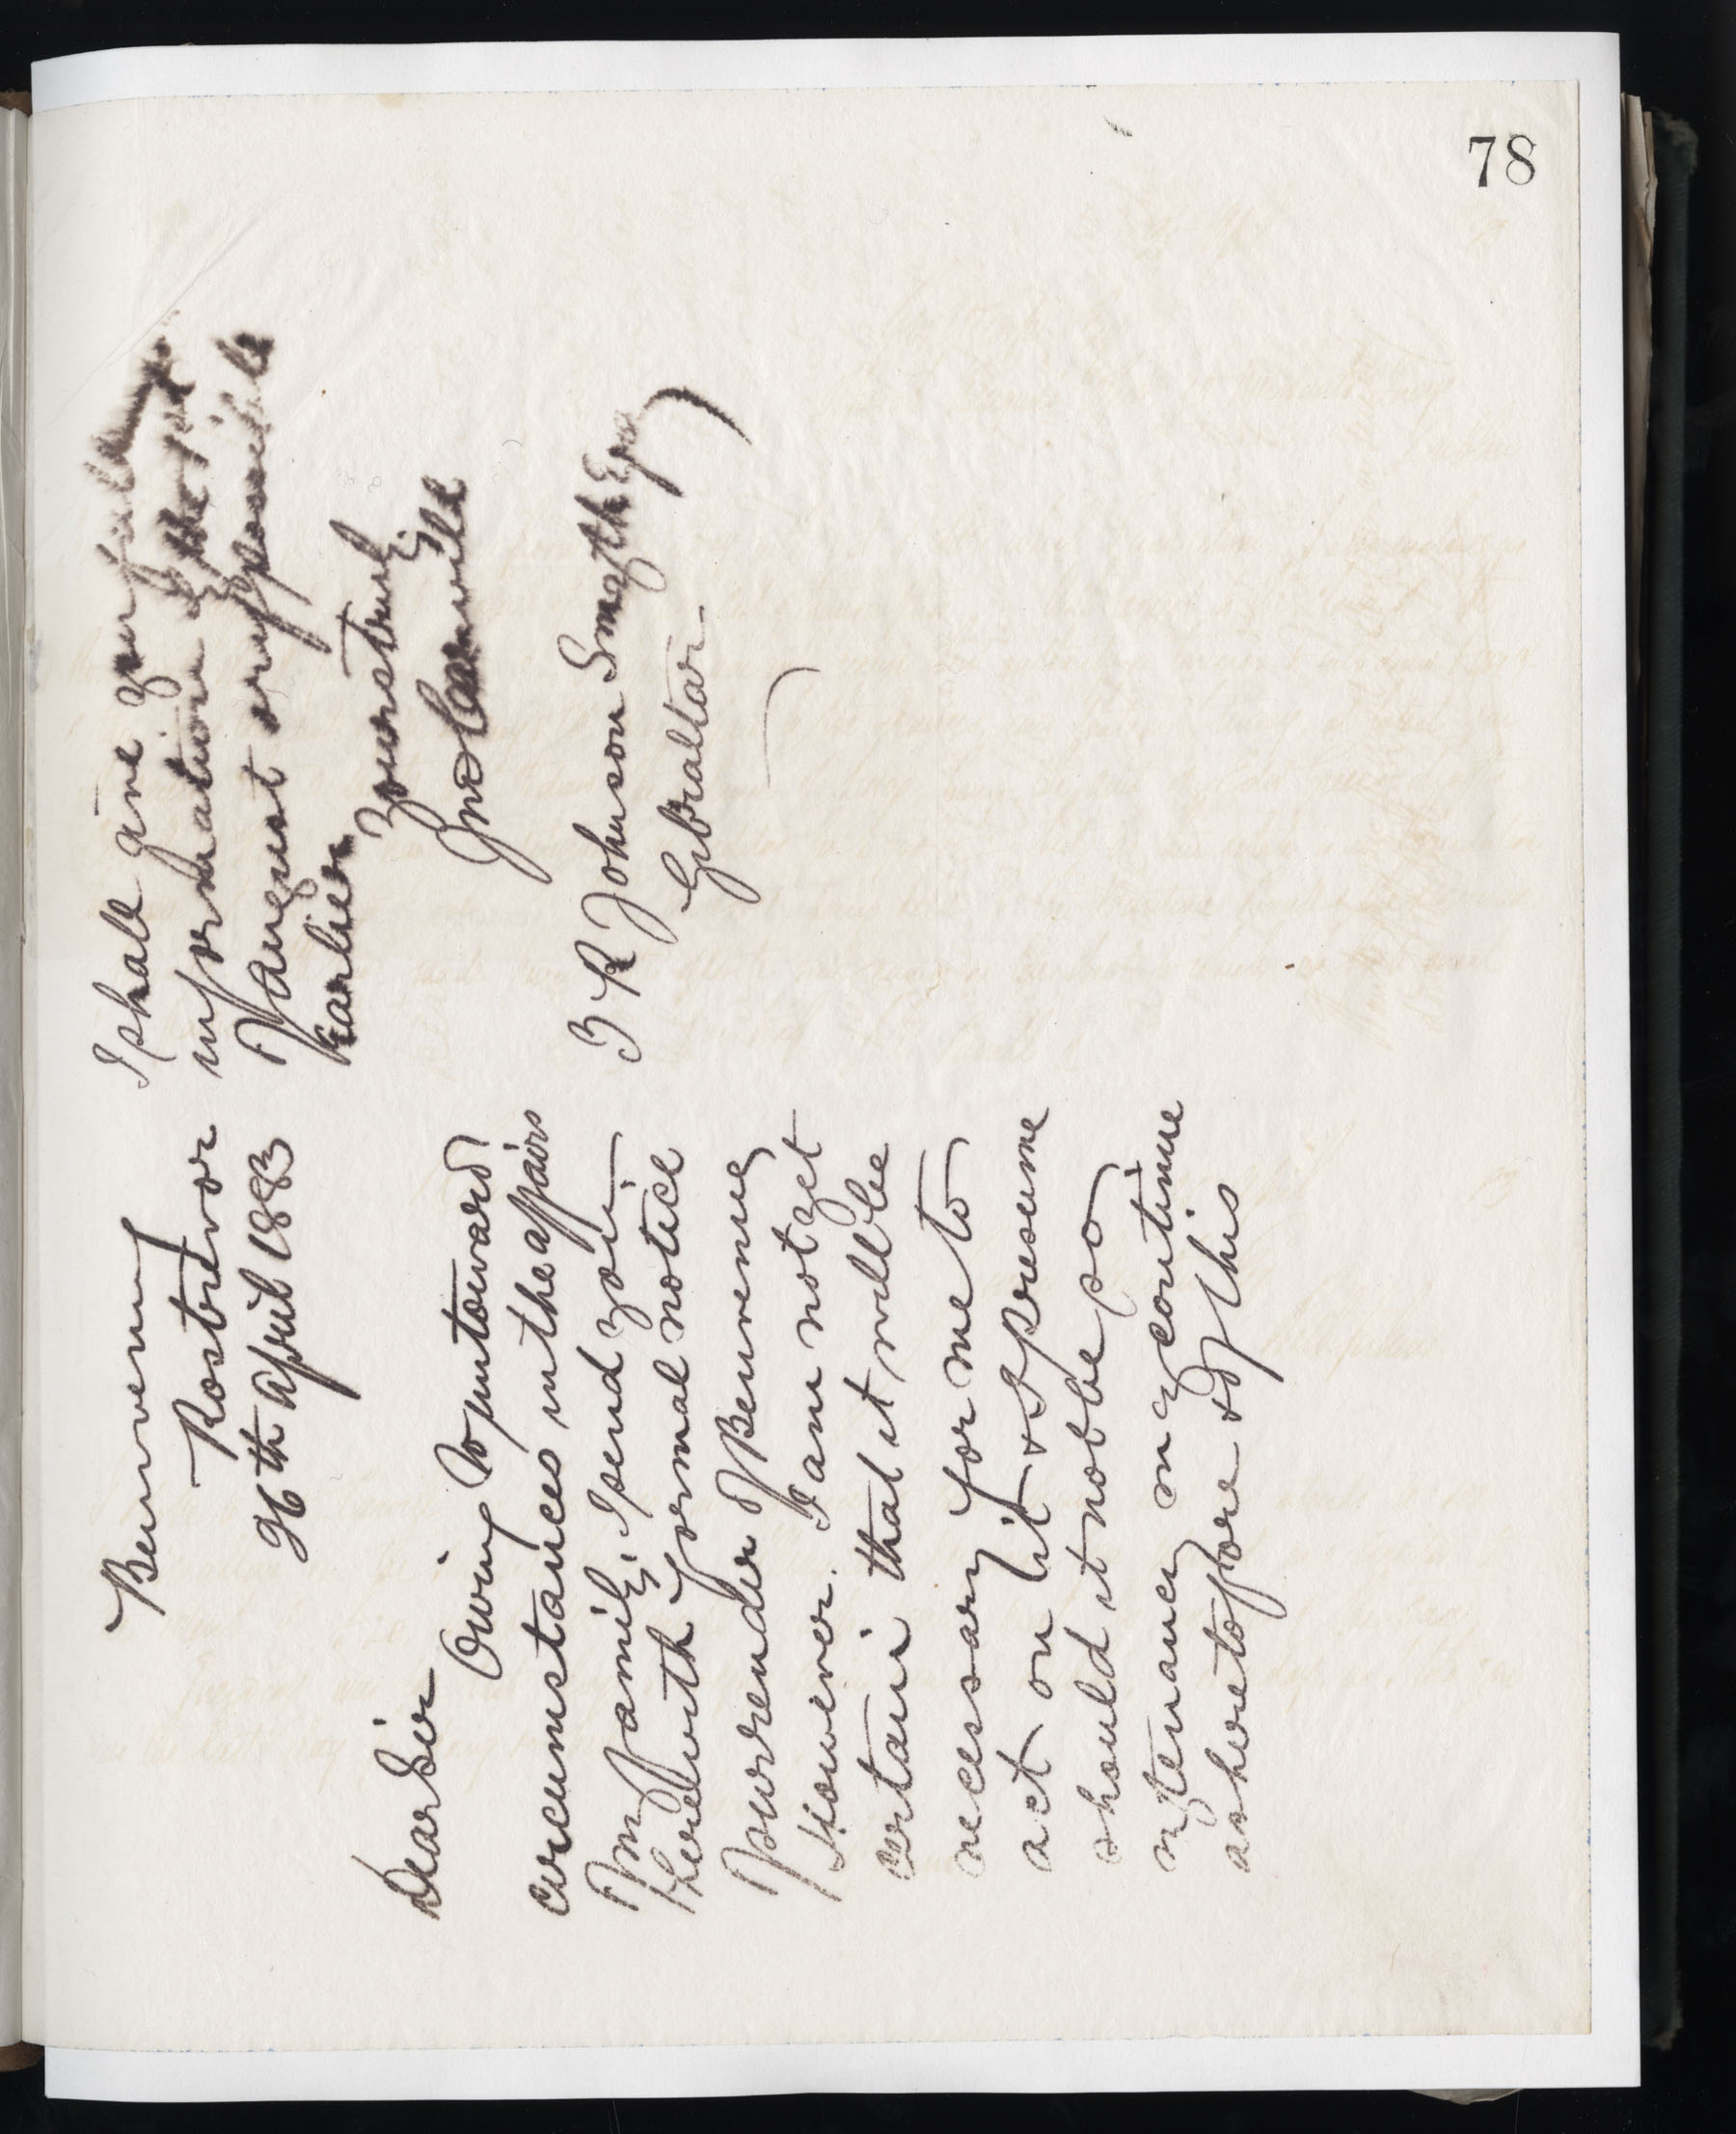 78
Benvenue
Rostrevor
26th April 1883
Dear Sir
Owing to untoward
circumstances in the affairs
of my family, I send you
herewith formal notice
of surrender of Benvenue
However. I am not yet
certain that it will be
necessary for me to
act on it & I presume
should it not be so
my tenancy may continue
as heretofore & of this
I shall give you
information by the 1st
of August or if possible
earlier
Yours truly
Jno
R Johnson Smyth Esqre
Gibraltar